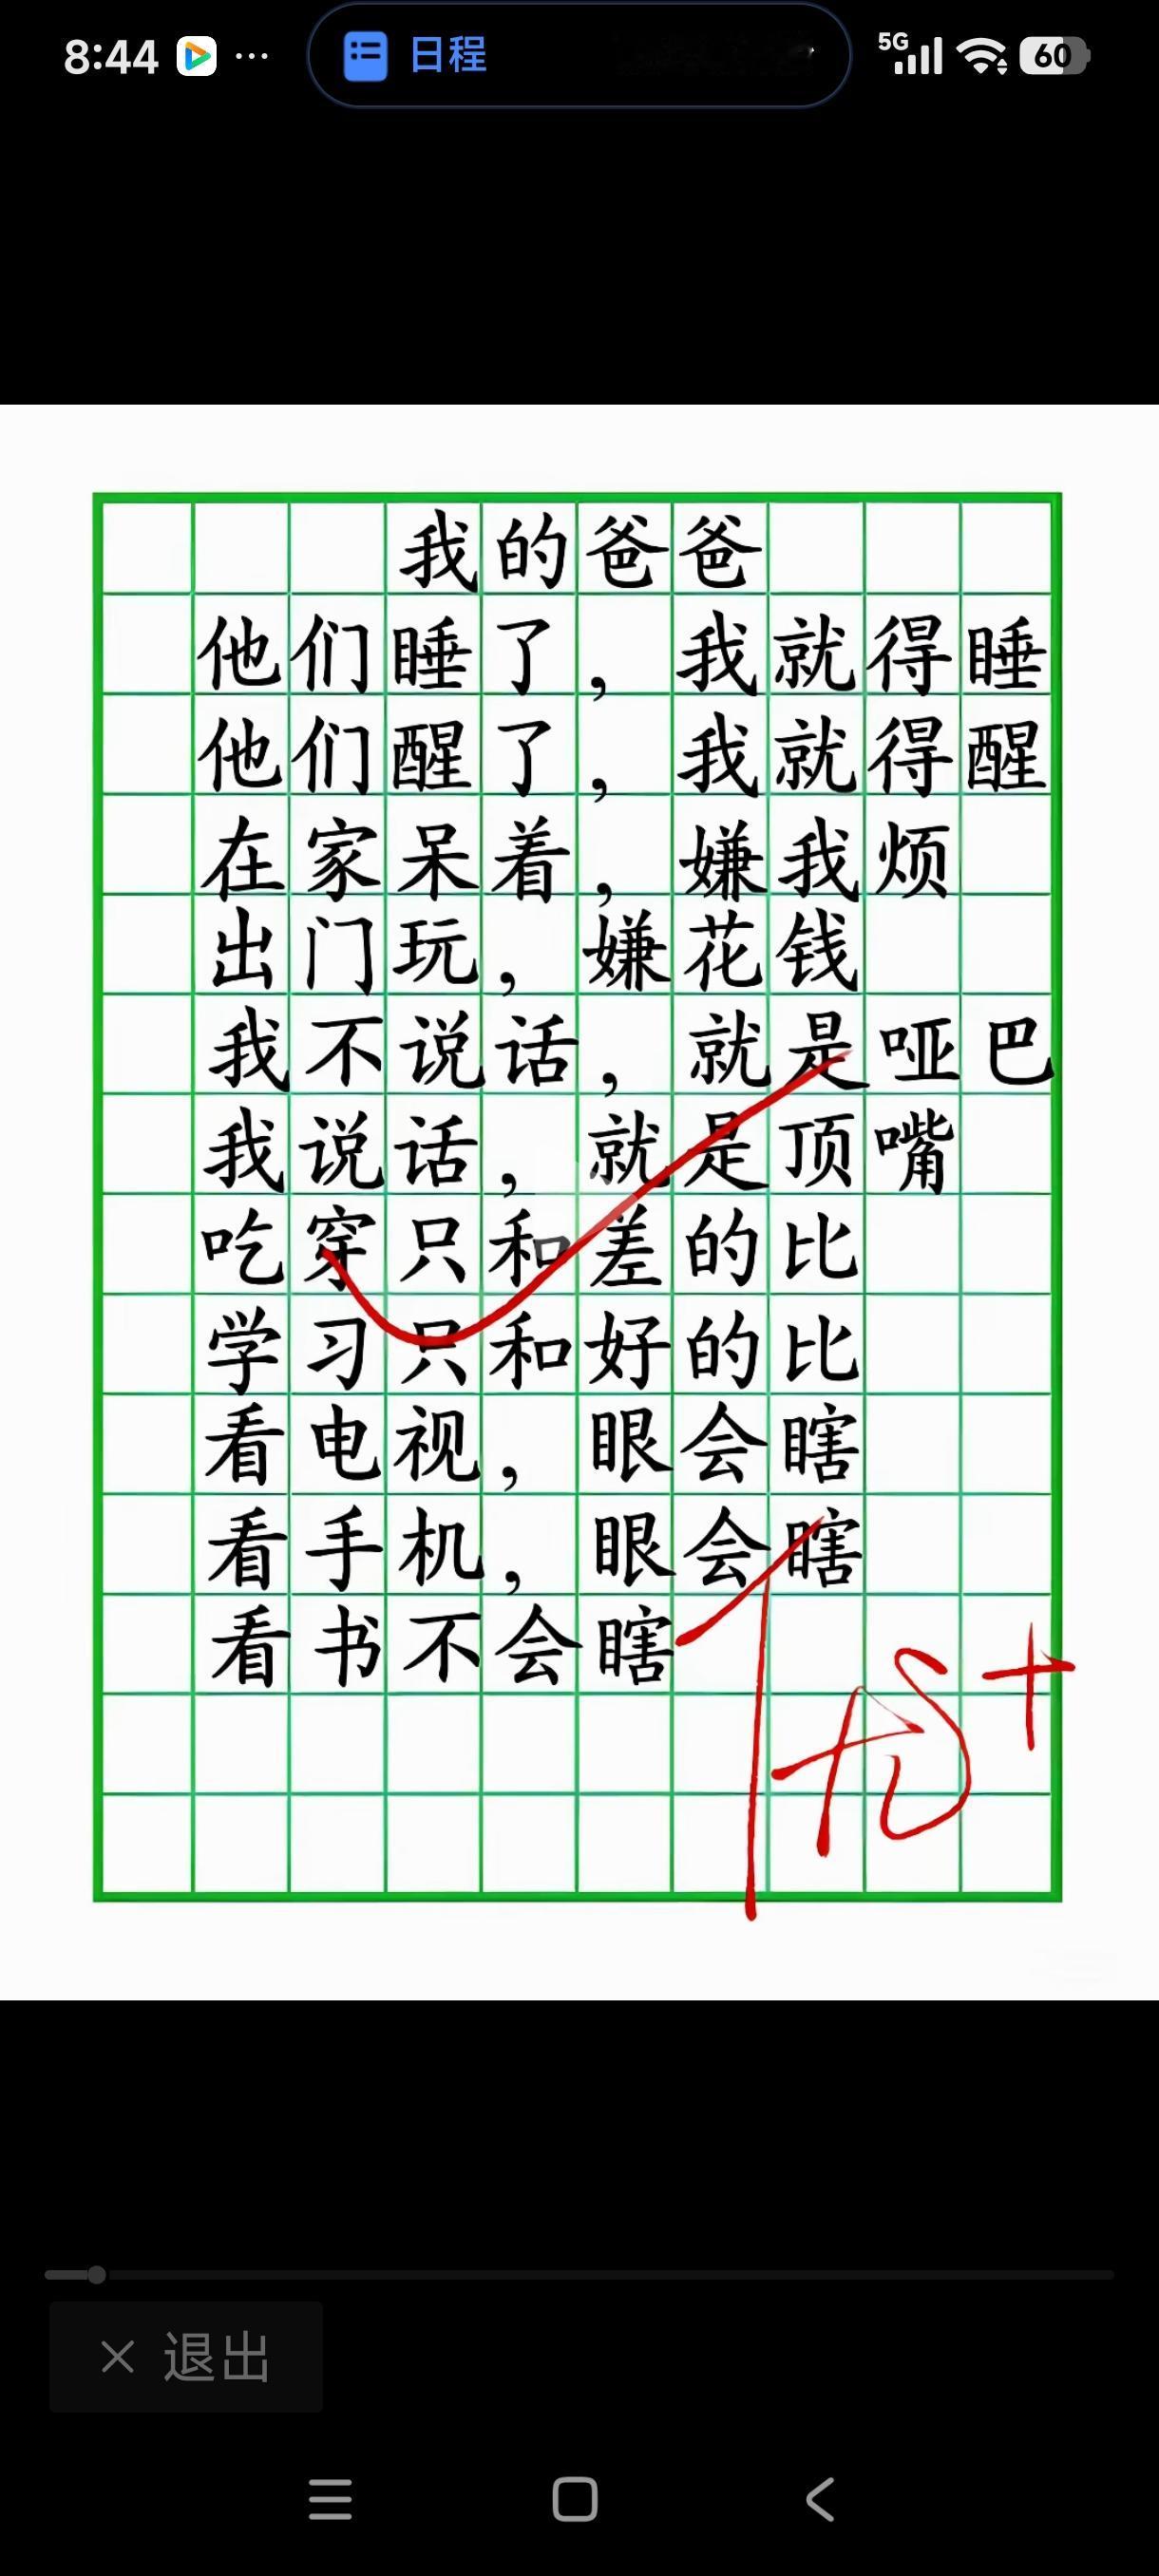 8:44
日程
5G
60
我的爸爸
他们睡了，我就得睡
他们醒了，我就得醒
在家呆着，嫌我烦
出门玩，嫌花钱
我不说话，就是哑巴
我说话，就是顶嘴
吃穿只和差的比
学习只和好的比
看电视，眼会瞎
看手机，眼会瞎
看书不会瞎
优+
退出